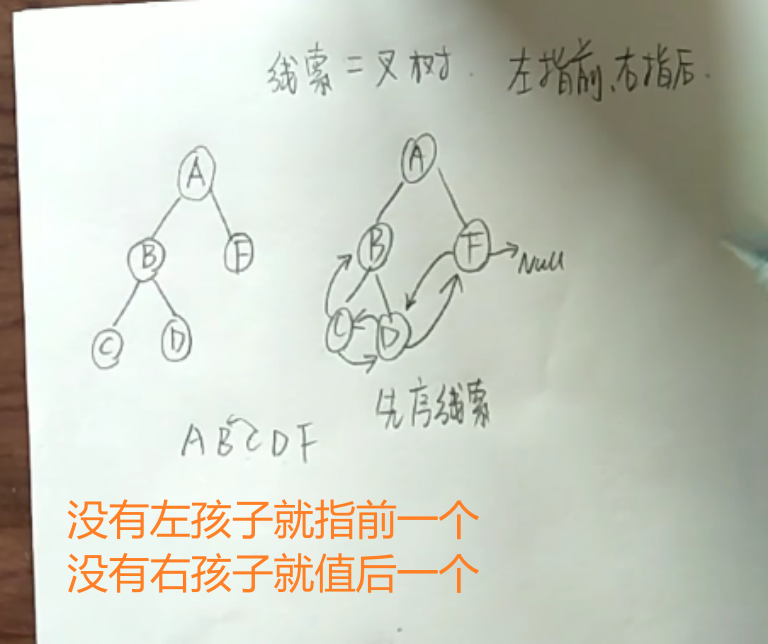 线索二叉树. 左指前、右指后.
A
B
F
C
D
A
B
F
Null
C
D
先序线索
A B C D F
没有左孩子就指前一个
没有右孩子就值后一个